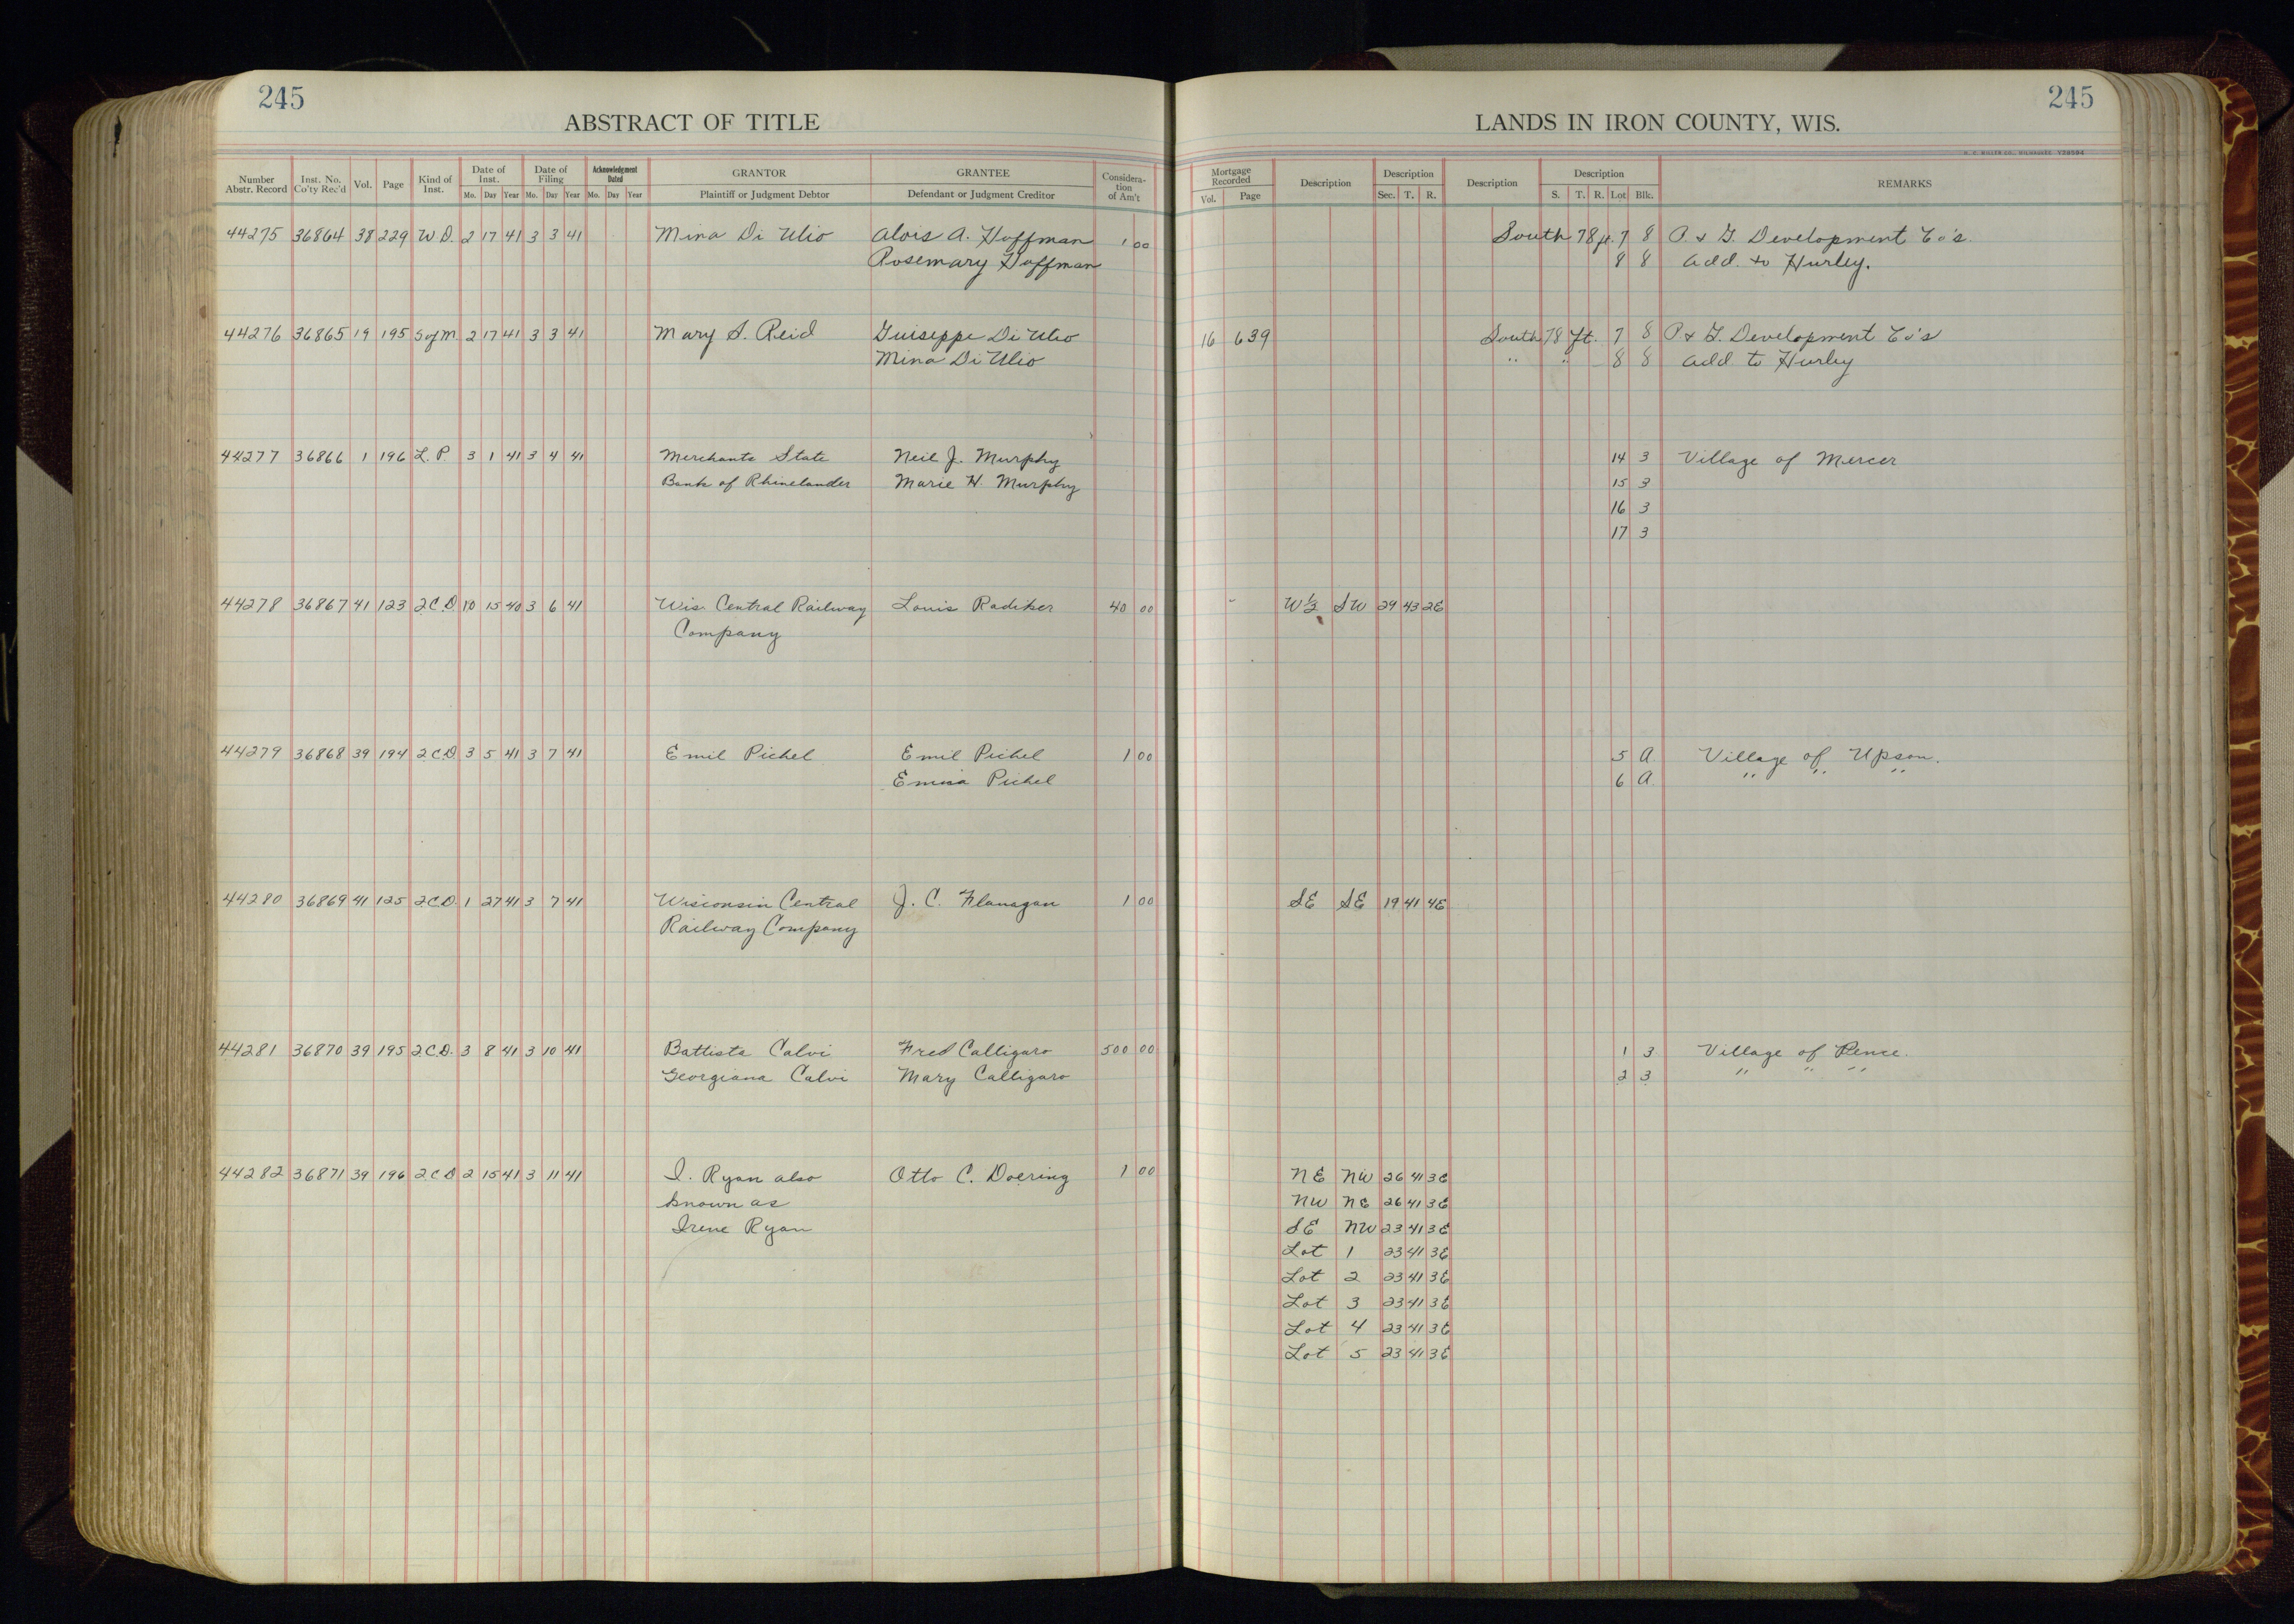 245
ABSTRACT OF TITLE
Number Abstr. Record | Inst. No. Co'ty Rec'd | Vol. | Page | Kind of Inst. | Date of Inst. Mo. Day Year | Date of Filing Mo. Day Year | Acknowledgment Dated Mo. Day Year | GRANTOR Plaintiff or Judgment Debtor | GRANTEE Defendant or Judgment Creditor | Considera-tion of Am't
44275 36864 38 229 W D. 2 17 41 3 3 41 Mina Di Ulio Alois A. Hoffman 1 00
Rosemary Hoffman
44276 36865 19 195 S of M 2 17 41 3 3 41 Mary S. Reid Guiseppe Di Ulio
Mina Di Ulio
44277 36866 1 196 L. P. 3 1 41 3 4 41 Merchants State Neil J. Murphy
Bank of Rhinelander Marie H. Murphy
44278 36867 41 123 2.C.D 10 15 40 3 6 41 Wis. Central Railway Louis Radiker 40 00
Company
44279 36868 39 194 2.C.D 3 5 41 3 7 41 Emil Pichel Emil Pichel 1 00
Emma Pichel
44280 36869 41 125 2.C.D. 1 27 41 3 7 41 Wisconsin Central J. C. Flanagan 1 00
Railway Company
44281 36870 39 195 2.C.D. 3 8 41 3 10 41 Battista Calvi Fred Calligaro 500 00
Georgiana Calvi Mary Calligaro
44282 36871 39 196 2.C.D 2 15 41 3 11 41 I. Ryan also Otto C. Doering 1 00
known as
Irene Ryan
245
LANDS IN IRON COUNTY, WIS.
H. C. MILLER CO., MILWAUKEE Y28594
Mortgage Recorded Vol. Page | Description | Description Sec. T. R. | Description | Description S. T. R. Lot Blk. | REMARKS
South 78 ft. 7 8 P. & G. Development Co's.
8 8 Add. to Hurley.
16 639 South 78 ft. 7 8 P & G. Development Co's
" " 8 8 Add. to Hurley
14 3 Village of Mercer
15 3
16 3
17 3
W ½ SW 29 43 2E
5 A. Village of Upson.
6 A. " " "
SE SE 19 41 4E
1 3 Village of Pence.
2 3 " " "
NE NW 26 41 3E
NW NE 26 41 3E
SE NW 23 41 3E
Lot 1 23 41 3E
Lot 2 23 41 3E
Lot 3 23 41 3E
Lot 4 23 41 3E
Lot 5 23 41 3E